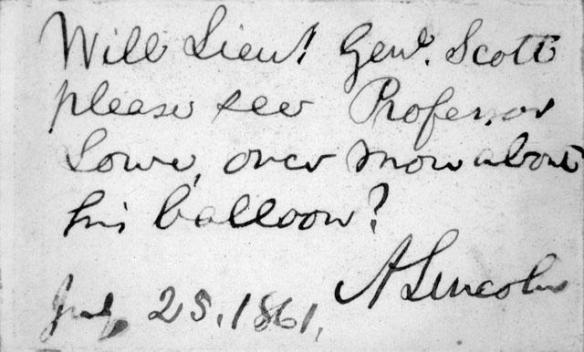 Will Lieut Genl. Scott
please see Professor
Lowe, once more about
his balloon?
A Lincoln
July 25, 1861.